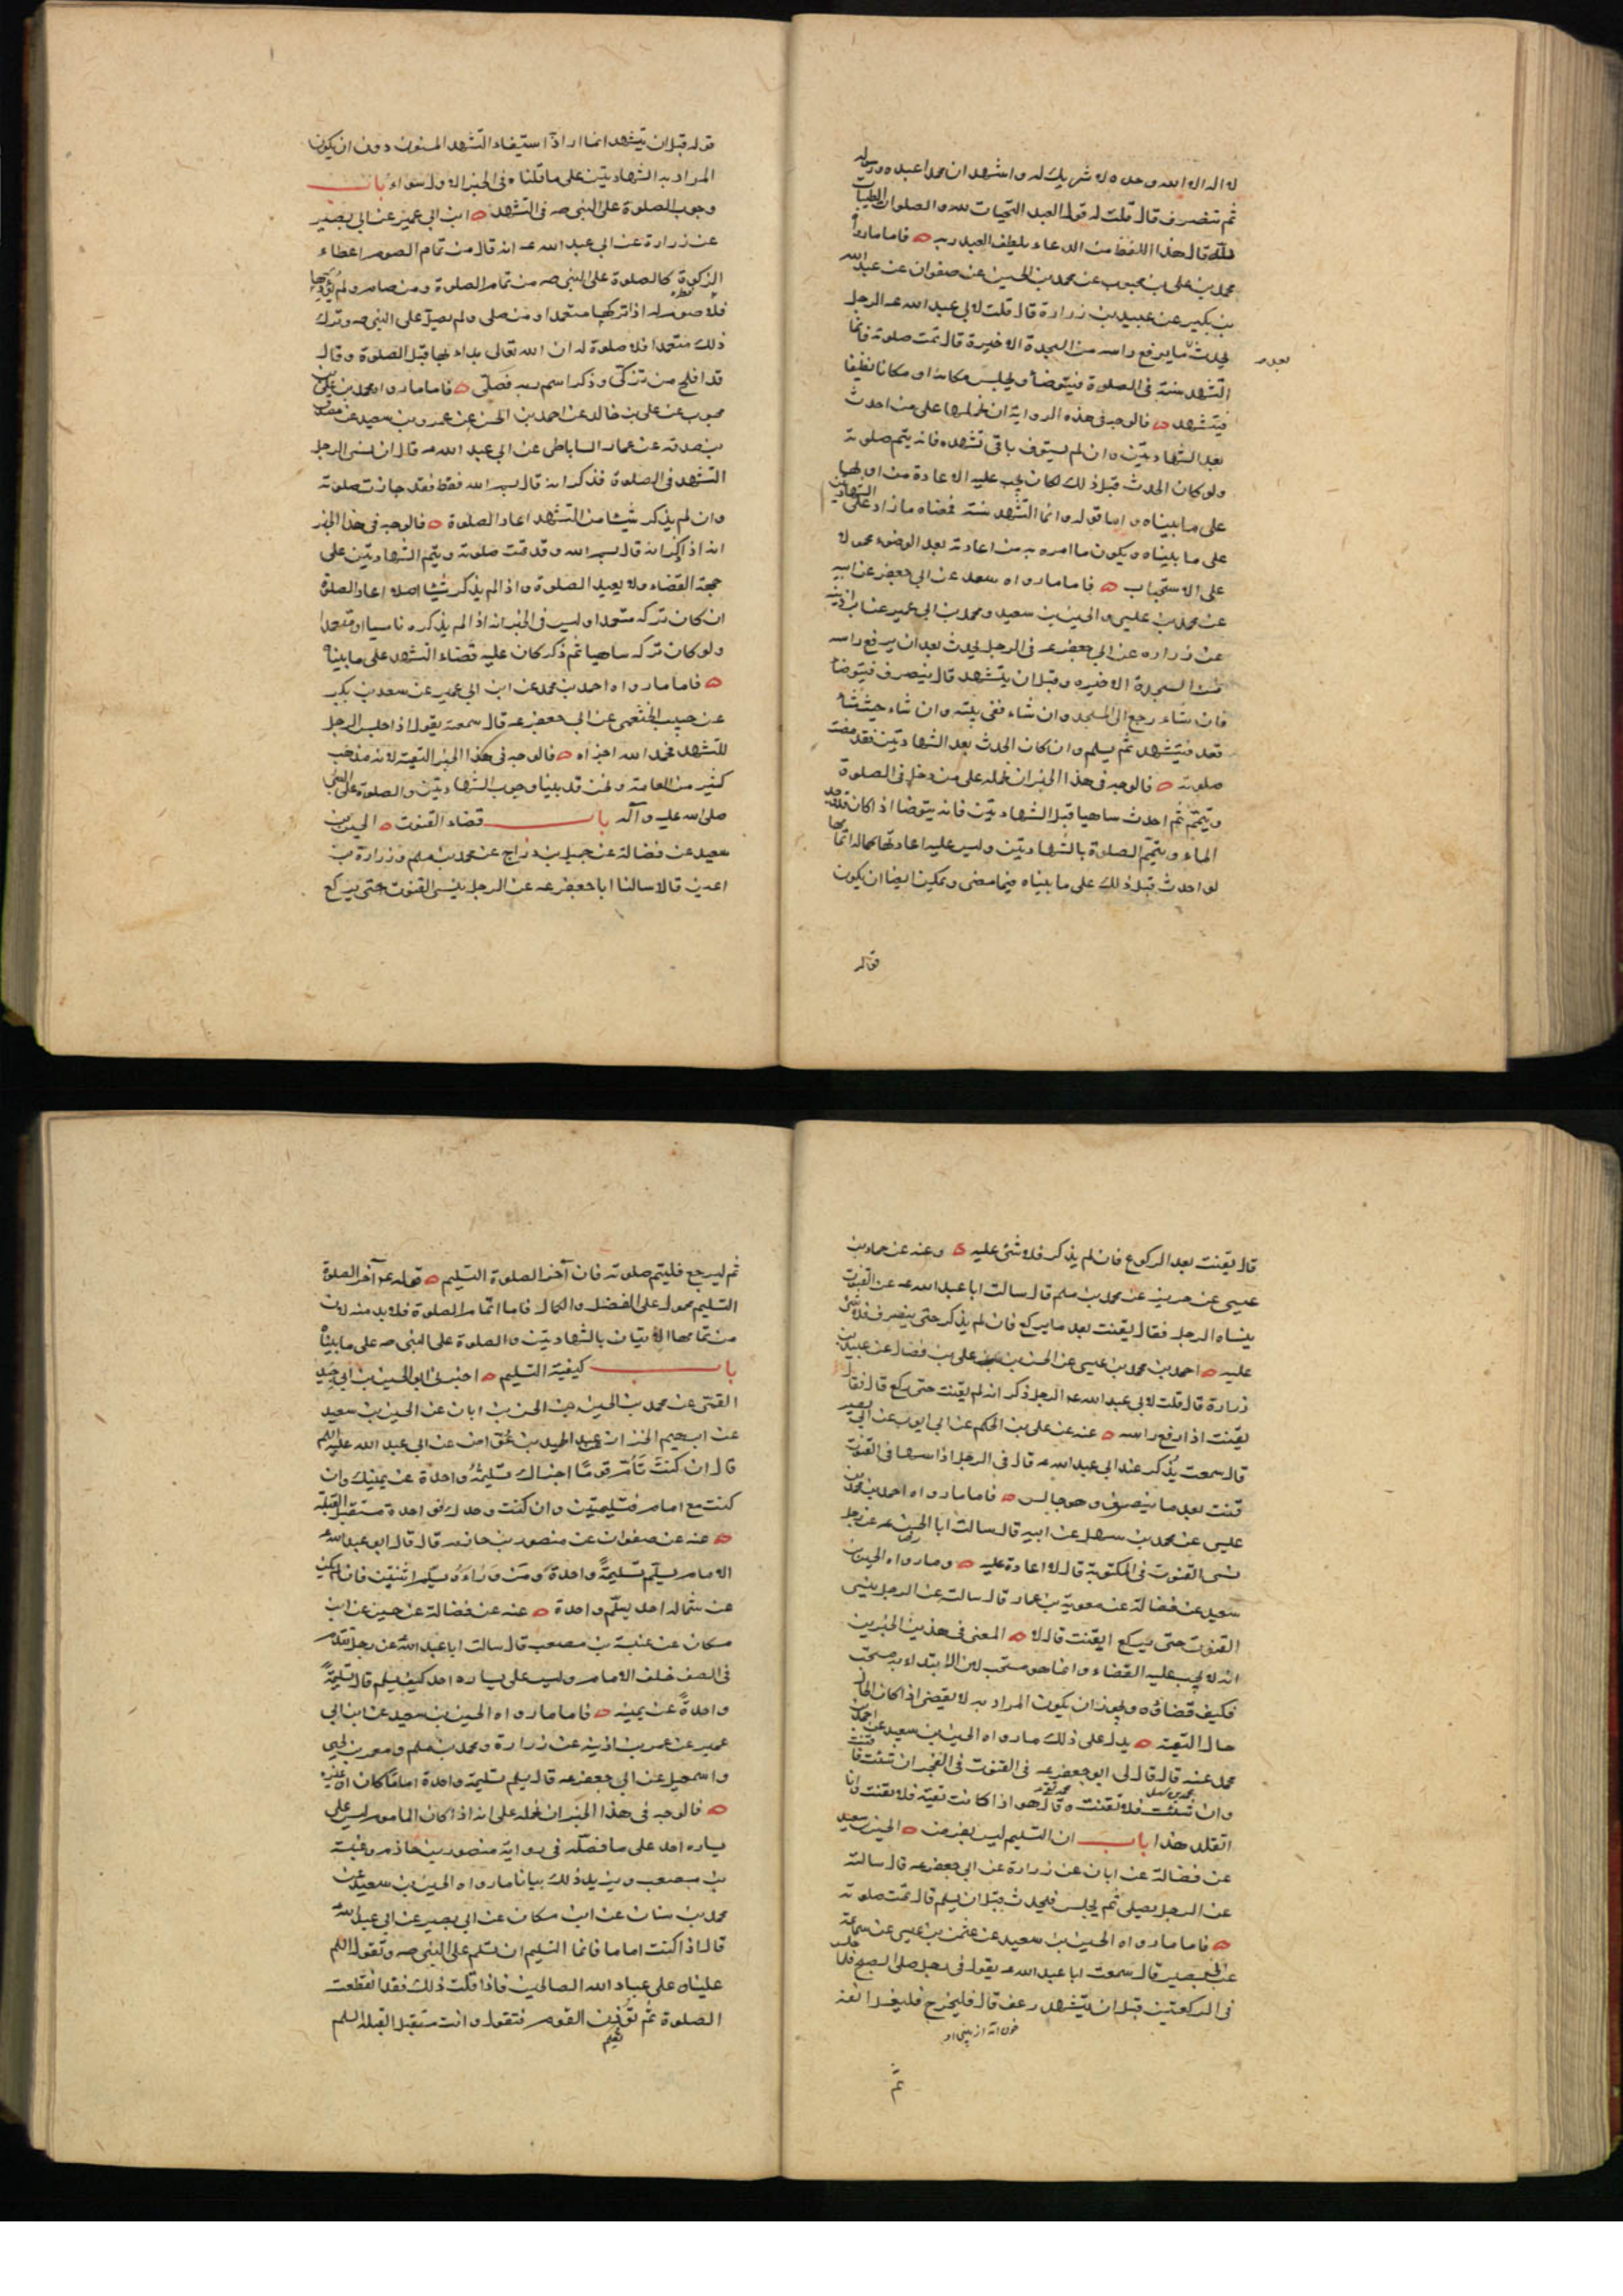 له اله الا الله وحده لا شريك له واشهد ان محمدا عبده ورسوله
ثم تنصرف قال قلت له قول العبد التحيات لله والصلوات الطيبات
لله قال هذا اللفظ من الدعاء يلطف العبد ربه فاما ما رواه
محمد بن علي بن محبوب عن محمد بن الحسين عن صفوان عن عبدالله
بن بكير عن عبيد بن زرارة قال قلت لابي عبد الله عه الرجل
يحدث ما يرفع راسه من السجدة الاخيرة قال تمت صلوته فانما
بعد م
التشهد سنة في الصلوة فيتوضأ ويجلس مكانه او مكانا نظيفا
فيتشهد فالوجه في هذه الرواية ان نحملها على من احدث
بعد الشهادتين وان لم يستوف باقي تشهده فانه يتم صلوته
ولو كان الحدث قبل ذلك لكان يجب عليه الاعادة من اولها
على ما بيناه واما قوله وانما التشهد سنة فمعناه ما زاد على الشهادتين
على ما بيناه ويكون ما امره به من اعادته بعد الوضوء محمولا
على الاستحباب فاما ما رواه سعد عن ابي جعفر عن ابيه
عن محمد بن عيسى والحسين بن سعيد ومحمد بن ابي عمير عن ابن اذينه
عن زراره عن ابي جعفر عه في الرجل يحدث بعد ان يرفع راسه
من السجدة الاخيره وقبل ان يتشهد قال ينصرف فيتوضا
فان شاء رجع الى المسجد وان شاء ففي بيته وان شاء حيث شاء
قعد فيتشهد ثم يسلم وان كان الحدث بعد الشهادتين فقد مضت
صلوته فالوجه في هذا الخبر ان نحمله على من دخل في الصلوة
بتيمم ثم احدث ساهيا قبل الشهادتين فانه يتوضا اذا كان قد وجد
الماء ويتم الصلوة بالشهادتين وليس عليه اعادتها كما له اتمامها
لو احدث قبل ذلك على ما بيناه فيما مضى ويمكن ايضا ان يكون
قوله
قوله قبل ان يتشهد انما اراد استيفاء التشهد المسنون دون ان يكون
المراد به الشهادتين على ما قلناه في الخبر الاول سواء باب
وجوب الصلوة على النبي صه في التشهد ابن ابي عمير عن ابي بصير
عن زرارة عن ابي عبد الله عه انه قال من تمام الصوم اعطاء
الزكوة كالصلوة على النبي صه من تمام الصلوة ومن صام ولم يؤدها
فلا صوم له اذا تركها متعمدا ومن صلى ولم يصل على النبي صه وترك
ذلك متعمدا فلا صلوة له ان الله تعالى بداء بها قبل الصلوة وقال
قد افلح من تزكى وذكر اسم ربه فصلى فاما ما رواه محمد بن علي بن
محبوب عن علي بن خالد عن احمد بن الحسن عن عمرو بن سعيد عن مصدق
بن صدقه عن عمار الساباطي عن ابي عبد الله عه قال ان نسى الرجل
التشهد في الصلوة فذكر انه قال بسم الله فقط فقد جازت صلوته
وان لم يذكر شيئا من التشهد اعاد الصلوة فالوجه في هذا الخبر
انه اذا ذكر انه قال بسم الله وقد تمت صلوته ويتم الشهادتين على
جهة القضاء ولا يعيد الصلوة واذا لم يذكر شيئا اصلا اعاد الصلوة
ان كان تركه متعمدا وليس في الخبر انه اذا لم يذكره ناسيا او متعمدا
ولو كان تركه ساهيا ثم ذكر كان عليه قضاء التشهد على ما بيناه
فاما ما رواه احمد بن محمد عن ابن ابي عمير عن سعد بن بكر
عن حبيب الخثعمي عن ابي جعفر عه قال سمعته يقول اذا جلس الرجل
للتشهد فحمد الله اجزاه فالوجه في هذا الخبر التقية لانه مذهب
كثير من العامة ونحن قد بينا وجوب الشهادتين والصلوة على النبي
صلى الله عليه وآله باب قضاء القنوت الحسين بن
سعيد عن فضالة عن جميل بن دراج عن محمد بن مسلم وزرارة بن
اعين قالا سالنا ابا جعفر عه عن الرجل ينسى القنوت حتى يركع
قال يقنت بعد الركوع فان لم يذكر فلا شئ عليه وعنه عن حماد بن
عيسى عن حريز عن محمد بن مسلم قال سالت ابا عبد الله عه عن القنوت
ينساه الرجل فقال يقنت بعد ما يركع فان لم يذكر حتى ينصرف فلا شئ
عليه احمد بن محمد بن عيسى عن الحسن بن علي بن فضال عن عبيد بن
زرارة قال قلت لابي عبد الله عه الرجل ذكر انه لم يقنت حتى ركع قال فقال
يقنت اذا رفع راسه عنه عن علي بن الحكم عن ابي ايوب عن ابي بصير
قال سمعت يذكر عند ابي عبد الله عه قال في الرجل اذا سها في القنوت
قنت بعد ما ينصرف وهو جالس فاما ما رواه احمد بن محمد بن
عيسى عن محمد بن سهل عن ابيه قال سالت ابا الحسن عه عن رجل
نسى القنوت في المكتوبة قال لا اعادة عليه وما رواه الحسين بن
سعيد عن فضالة عن معوية بن عمار قال سالته عن الرجل ينسى
القنوت حتى يركع ايقنت قال لا المعنى في هذين الخبرين
انه لا يجب عليه القضاء وانما هو مستحب لان الابتداء به مستحب
فكيف قضاؤه ويجوز ان يكون المراد به لا يقضى اذا كان الحال
حال التقية يدل على ذلك ما رواه الحسين بن سعيد عن احمد بن
محمد عنه قال قال لي ابو جعفر عه في القنوت في الفجر ان شئت فاقنت
وان شئت فلا تقنت وقال هو اذا كانت تقية فلا تقنت وانا
اتقلد هذا باب ان التسليم ليس بفرض الحسين بن سعيد
عن فضالة عن ابان عن زرارة عن ابي جعفر عه قال سالته
عن الرجل يصلى ثم يجلس فيحدث قبل ان يسلم قال تمت صلوته
فاما ما رواه الحسين بن سعيد عن عثمن بن عيسى عن سماعة
عن ابي بصير قال سمعت ابا عبد الله عه يقول في رجل صلى الصبح فلما جلس
في الركعتين قبل ان يتشهد رعف قال فليخرج فليغسل انفه
ثم
ثم ليرجع فليتم صلوته فان آخر الصلوة التسليم قوله عه آخر الصلوة
التسليم محمول على الفضل والكمال فاما اتمام الصلوة فلا بد منه لان
من تمامها الاتيان بالشهادتين والصلوة على النبي صه على ما بيناه
باب كيفية التسليم اخبرني ابو الحسين بن ابي جيد
القمى عن محمد بن الحسين بن الحسن بن ابان عن الحسين بن سعيد
عن ابرهيم الخزاز عن عبد الحميد بن عواض عن ابي عبد الله عليه السلام
قال ان كنت تأم قوما اجزاك تسليمة واحدة عن يمينك وان
كنت مع امام فتسليمتين وان كنت وحدك فواحدة مستقبل القبلة
عنه عن صفوان عن منصور بن حازم قال قال ابو عبدالله
الامام يسلم تسليمة واحدة ومن وراءه يسلم اثنتين فان لم يكن
عن شماله احد يسلم واحدة عنه عن فضالة عن حسين عن ابن
مسكان عن عنبسة بن مصعب قال سالت ابا عبد الله عن رجل يقوم
في الصف خلف الامام وليس على يساره احد كيف يسلم قال تسليمة
واحدة عن يمينه فاما ما رواه الحسين بن سعيد عن ابن ابي
عمير عن عمر بن اذينه عن زرارة ومحمد بن مسلم ومعمر بن يحيى
واسمعيل عن ابي جعفر عه قال يسلم تسليمة واحدة اماما كان او غيره
فالوجه في هذا الخبر ان نحمله على انه اذا كان الماموم ليس على
يساره احد على ما فصله في رواية منصور بن حازم وعنبسة
بن مصعب ويزيد ذلك بيانا ما رواه الحسين بن سعيد عن
محمد بن سنان عن ابن مسكان عن ابي بصير عن ابي عبدالله
قال اذا كنت اماما فانما التسليم ان تسلم على النبي صه وتقول السلم
علينا وعلى عباد الله الصالحين فاذا قلت ذلك فقد انقطعت
الصلوة ثم تؤذن القوم فتقول وانت مستقبل القبلة السلم